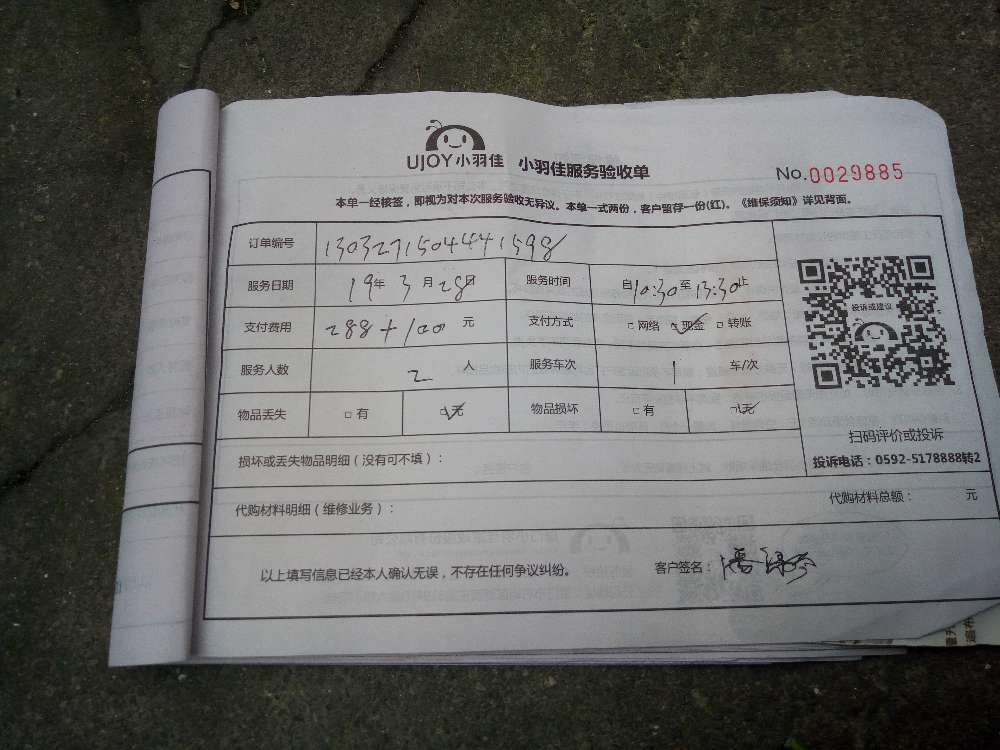 UJOY小羽佳 小羽佳服务验收单 No.0029885
本单一经核签，即视为对本次服务验收无异议。本单一式两份，客户留存一份(红)。《维保须知》详见背面。
订单编号 1303271504441598
服务日期 19年3月28日 服务时间 自10:30至13:30止
支付费用 288+100元 支付方式 □网络 □现金 □转账
服务人数 2人 服务车次 1车/次
物品丢失 □有 □无 物品损坏 □有 □无
投诉或建议
扫码评价或投诉
投诉电话：0592-5178888转2
损坏或丢失物品明细（没有可不填）：
代购材料明细（维修业务）： 代购材料总额： 元
以上填写信息已经本人确认无误，不存在任何争议纠纷。 客户签名：